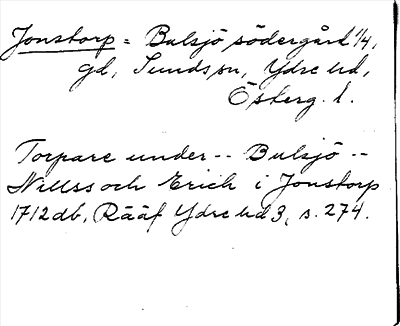 Jonstorp = Bulsjö södergård 1/4,
gd, Sunds sn, Ydre hd,
Österg. l.
Torpare under -- Bulsjö --
Nillss och Erich i Jonstorp
1712 db, Rääf Ydre hd 3, s. 274.